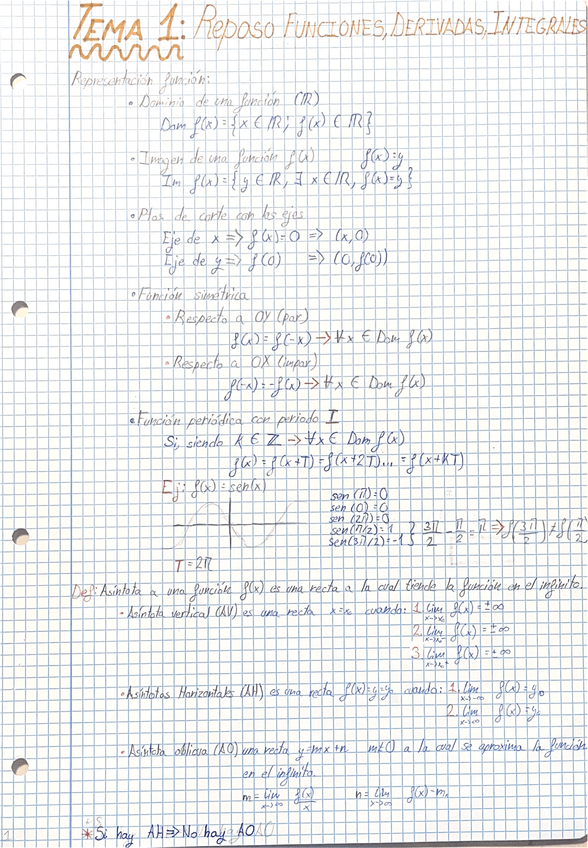 TEMA 1: Reposo FUNCIONES, DERIVADAS, INTEGRALES
Representación función:
• Dominio de una función (ℝ)
Dom f(x) = {x ∈ ℝ; f(x) ∈ ℝ}
• Imagen de una función f(x) f(x)=y
Im f(x) = {y ∈ ℝ, ∃ x ∈ ℝ, f(x)=y}
• Ptos de corte con los ejes
Eje de x => f(x)=0 => (x,0)
Eje de y => f(0) => (0, f(0))
• Función simétrica
• Respecto a OY (par)
f(x) = f(-x) → ∀x ∈ Dom f(x)
• Respecto a OX (impar)
f(-x) = -f(x) → ∀x ∈ Dom f(x)
• Función periódica con periodo T
Si, siendo K ∈ ℤ → ∀x ∈ Dom f(x)
f(x) = f(x+T) = f(x+2T)... = f(x+KT)
Ej: f(x) = sen(x)
sen(π)=0
sen(0)=0
sen(2π)=0
sen(π/2)=1
sen(3π/2)=-1 } 3π/2 - π/2 = π => f(3π/2) ≠ f(π/2)
T = 2π
Def: Asíntota a una función f(x) es una recta a la cual tiende la función en el infinito.
• Asíntota vertical (AV) es una recta x=x₀ cuando: 1. lim x→x₀ f(x) = ±∞
2. lim x→x₀⁻ f(x) = ±∞
3. lim x→x₀⁺ f(x) = ±∞
• Asíntotas Horizontales (AH) es una recta f(x)=y=y₀ cuando: 1. lim x→-∞ f(x) = y₀
2. lim x→∞ f(x) = y₀
• Asíntota oblicua (AO) una recta y=mx+n m≠0 a la cual se aproxima la función
en el infinito.
m = lim x→∞ f(x)/x n = lim x→∞ f(x)-mx
* Si hay AH => No hay AO
1